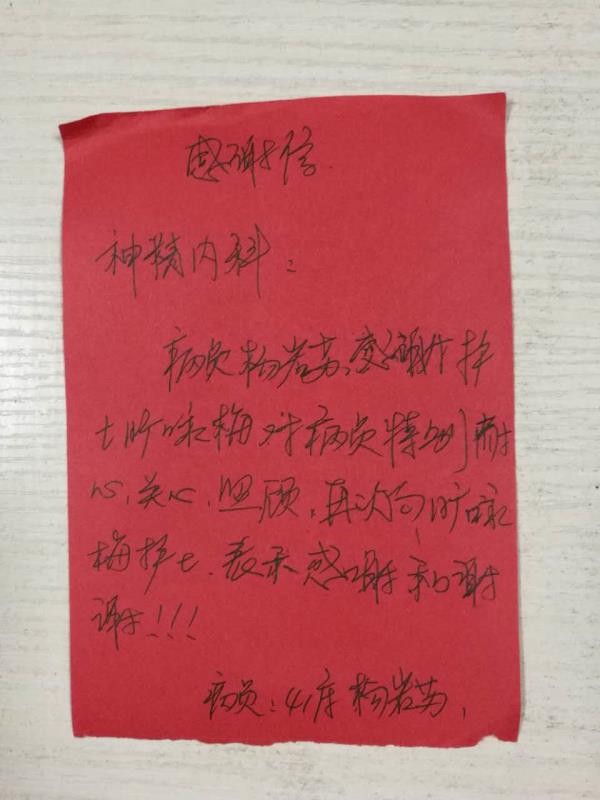 感谢信
神精内科：
病员杨岩芳，感谢护
士旷咏梅对病员特别耐
心、关心、照顾，再次向旷咏
梅护士、表示感谢和谢
谢！！！
病员：41床 杨岩芳，